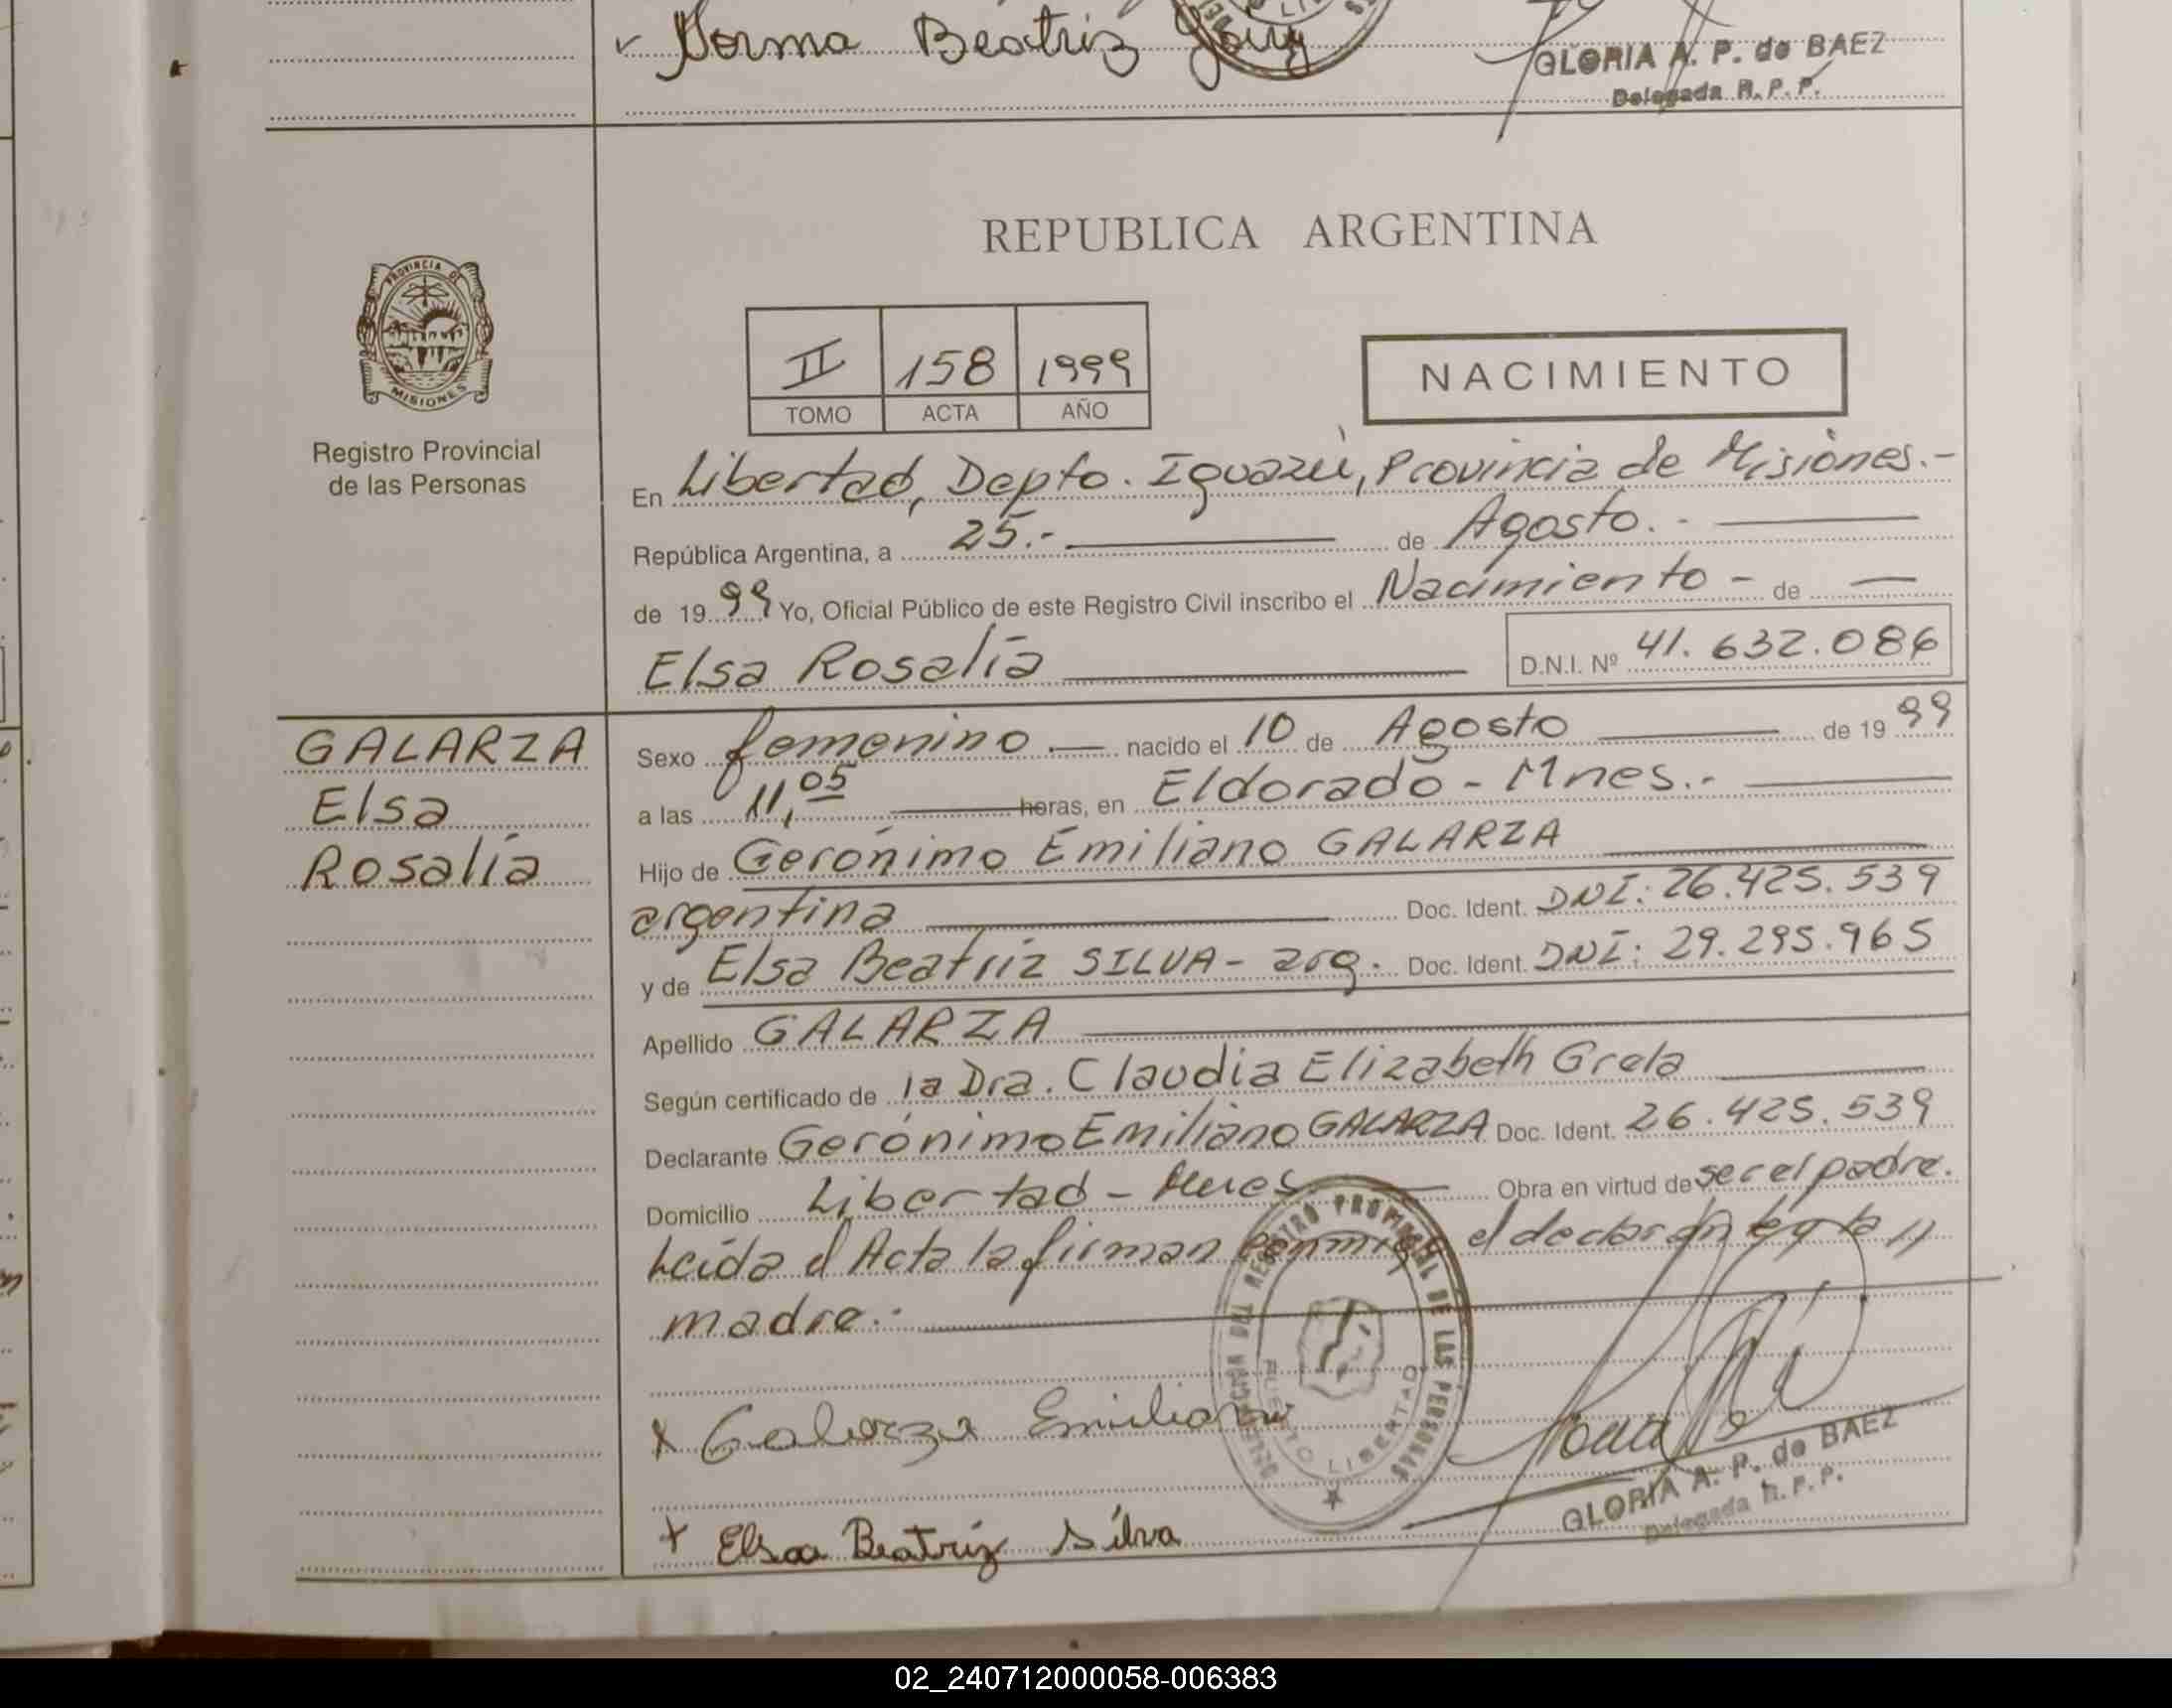 Norma Beatriz
GLORIA A. P. de BAEZ
Delegada R. P. P.
REPUBLICA ARGENTINA
PROVINCIA DE
MISIONES
Registro Provincial
de las Personas
II 158 1999
TOMO ACTA AÑO
NACIMIENTO
En Libertad, Depto. Iguazú, Provincia de Misiones.-
República Argentina, a 25.- de Agosto.-
de 1999 Yo, Oficial Público de este Registro Civil inscribo el Nacimiento - de —
Elsa Rosalía D.N.I. Nº 41.632.086
GALARZA
Elsa
Rosalía
Sexo femenino.— nacido el 10 de Agosto de 1999
a las 11,05 horas, en Eldorado - Mnes.-
Hijo de Gerónimo Emiliano GALARZA
argentina Doc. Ident. DNI: 26.425.539
y de Elsa Beatriz SILVA - arg. Doc. Ident. DNI: 29.295.965
Apellido GALARZA
Según certificado de la Dra. Claudia Elizabeth Grela
Declarante Gerónimo Emiliano GALARZA Doc. Ident. 26.425.539
Domicilio Libertad - Mnes. Obra en virtud de ser el padre.
Leída el Acta la firman conmigo el declarante y la //
madre.-
DELEGACION DEL REGISTRO PROVINCIAL DE LAS PERSONAS
LIBERTAD
x Galarza Emiliano
GLORIA A. P. de BAEZ
Delegada R. P. P.
x Elsa Beatriz Silva
02_240712000058-006383